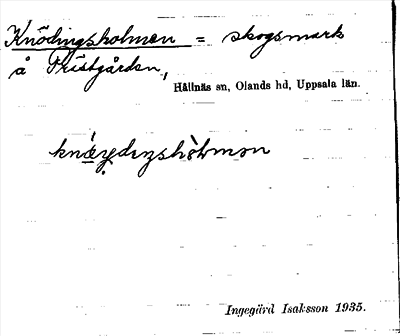 Knödingsholmen = skogsmark
å Prästgården,
Hållnäs sn, Olands hd, Uppsala län.
Ingegärd Isaksson 1935.